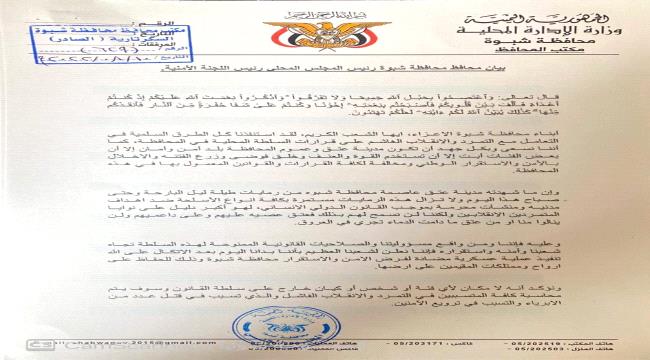 بسم الله الرحمن الرحيم
الجمهورية اليمنية
وزارة الإدارة المحلية
محافظة شبوة
مكتب المحافظ
الرقم :
مكتب محافظ محافظة شبوة
السكرتارية (الصادر)
المرفقات :
الرقم
التاريخ
بيان محافظ محافظة شبوة رئيس المجلس المحلي رئيس اللجنة الأمنية
قال تعالى: واعتصموا بحبل الله جميعا ولا تفرقوا واذكروا نعمت الله عليكم إذ كنتم
أعداء فألف بين قلوبكم فأصبحتم بنعمته إخوانا وكنتم على شفا حفرة من النار فأنقذكم
منها كذلك يبين الله لكم آياته لعلكم تهتدون.
أبناء محافظة شبوة الاعزاء، ايها الشعب الكريم، لقد استنفذنا كل الطرق السلمية في
التعامل مع التمرد والانقلاب الغاشم على قرارات السلطة المحلية في المحافظة، كما
اننا نسعى وبكل جهد أن تكون مدينة عتق وعموم المحافظة بلد امن وامان إلا أن
بعض الفئات أبت إلا أن تستخدم القوة والعنف وخلق فوضى وزرع الفتنه والاخلال
بالأمن والاستقرار الوطني ومخالفة لكافة القرارات والقوانين المعمول بها في هذه
المحافظة.
وإن ما شهدته مدينة عتق عاصمة محافظة شبوه من رمايات طيلة ليل البارحة وحتى
صباح هذا اليوم ولا تزال هذه الرمايات مستمرة بكافة انواع الأسلحة ضد اهداف
مدنيه ومنشآت محرمة بموجب القانون الدولي الانساني، لهو أكبر دليل على نوايا
المتمردين الانقلابين ولكننا لن نسمح لهم بذلك فعتق عصيه عليهم وعلى داعميهم ولن
ينالوا منا أو من عتق ما دامت الدماء تجري في العروق.
وعليه فإننا ومن واقع مسؤوليتنا والصلاحيات القانونية الممنوحة لهذه السلطة تجاه
شعبنا وأمنه واستقراره فإننا نعلن لشعبنا العظيم بأننا بدأنا اليوم بعد الاتكال على الله
تنفيذ عملية عسكرية مضادة لفرض الأمن والاستقرار بمحافظة شبوة وذلك للحفاظ على
ارواح وممتلكات المقيمين على ارضها.
ونؤكد أنه لا مكان لأي فئة أو شخص أو كيان خارج على سلطة القانون وسوف يتم
محاسبة كافة المتسببين في التمرد والانقلاب الفاشل والذي تسبب في قتل عدد من
الابرياء والتسبب في ترويع الآمنين.
هاتف المكتب : 05/202519
هاتف المنزل : 05/202503
فاكس : 05/203171